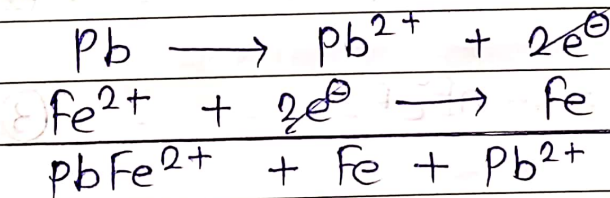 Pb ⟶ Pb²⁺ + 2e⊖
Fe²⁺ + 2e⊖ ⟶ Fe
PbFe²⁺ + Fe + Pb²⁺